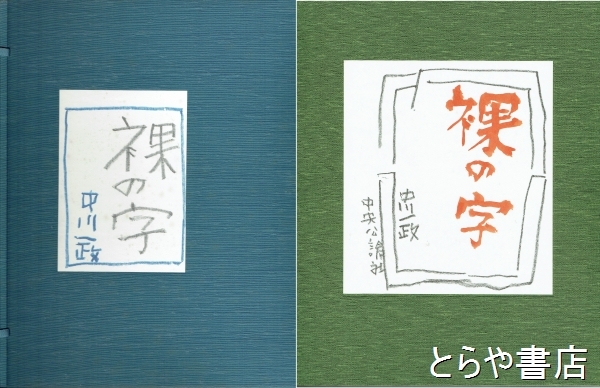 裸の字
中川一政
裸の字
中川一政
中央公論社
とらや書店